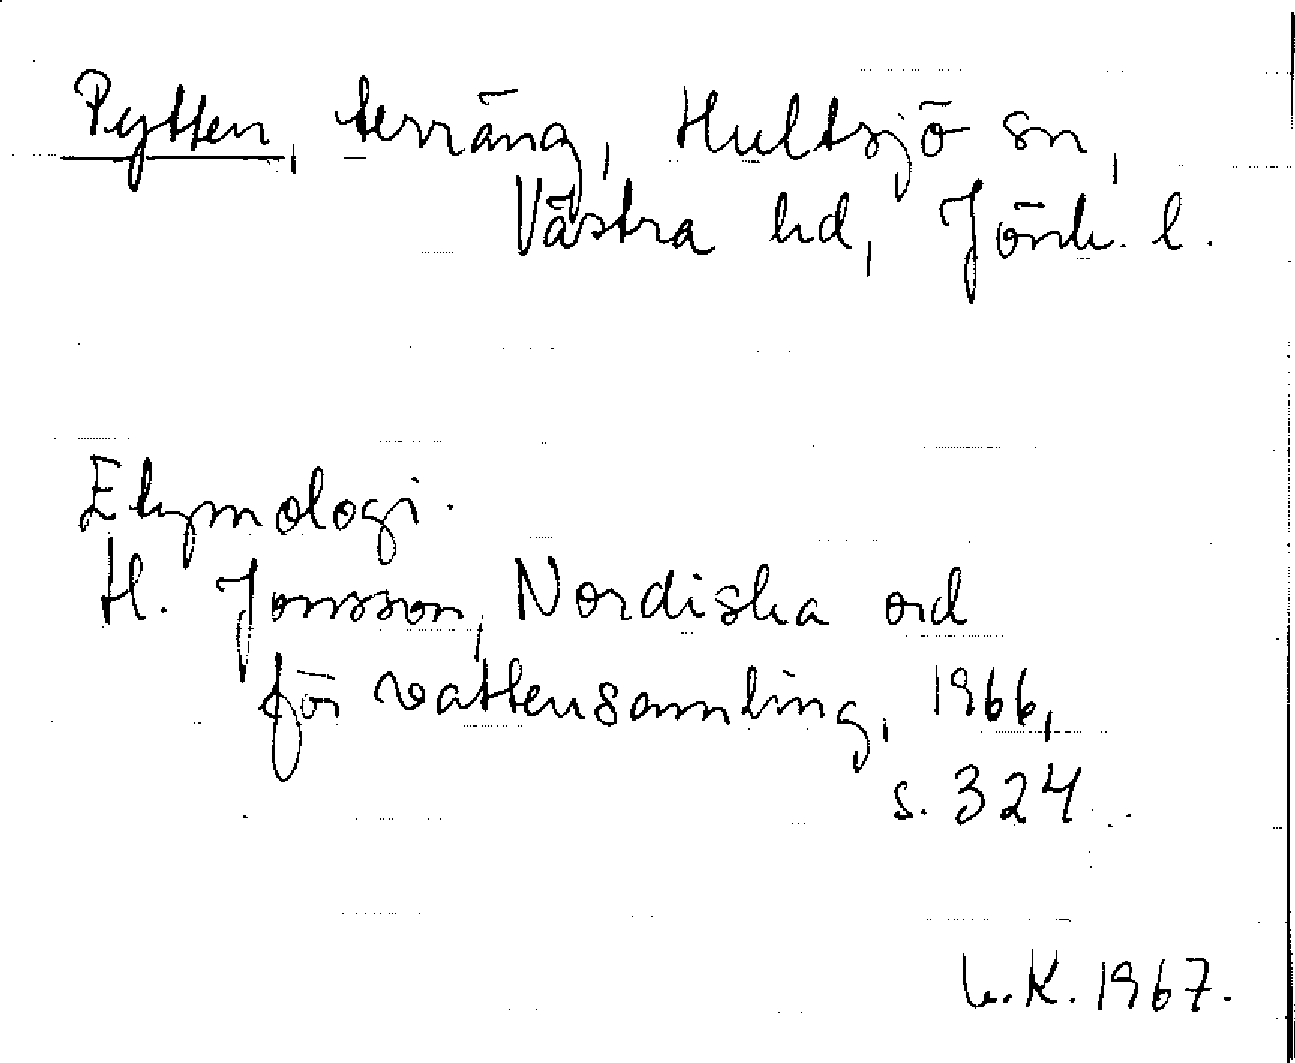 Pytten, terräng, Hultsjö sn,
Västra hd, Jönk. l.
Etymologi.
H. Jonsson, Nordiska ord
för vattensamling, 1966,
s. 324.
K. 1967.